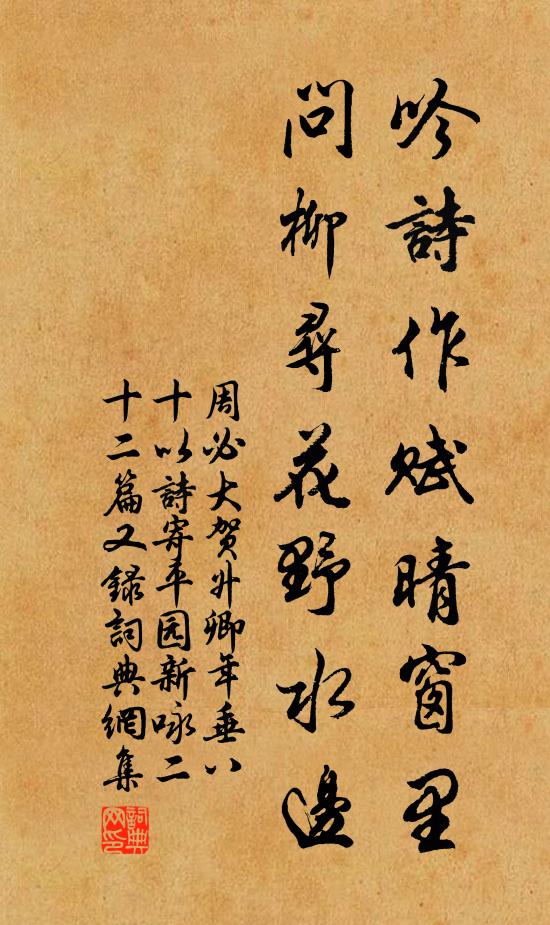 吟詩作賦晴窗里
問柳尋花野水邊
周必大賀升卿年垂八
十以詩寄平园新咏二
十二篇又録詞典網集
詞典网印